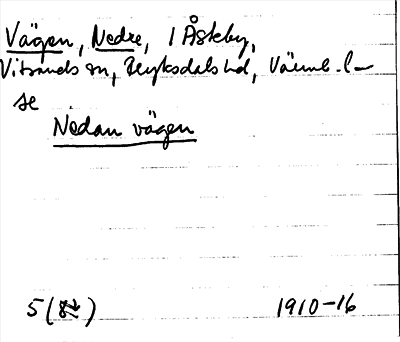 Vägen, Nedre, i Åskeby,
Vitsands sn, Älvdals hd, Värml. l
se
Nedan vägen
5 ( ) 1910-16